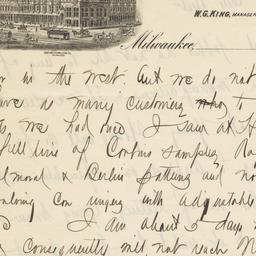 W. G. KING, MANAGER
Milwaukee,
in the west. But we do not
as many customers who to
we had one I saw at H
full line of Corbin samples Ra
moral & Berlin patterns and no
along con ringing with adjustable
I am about 5 days
Consequently will not reach